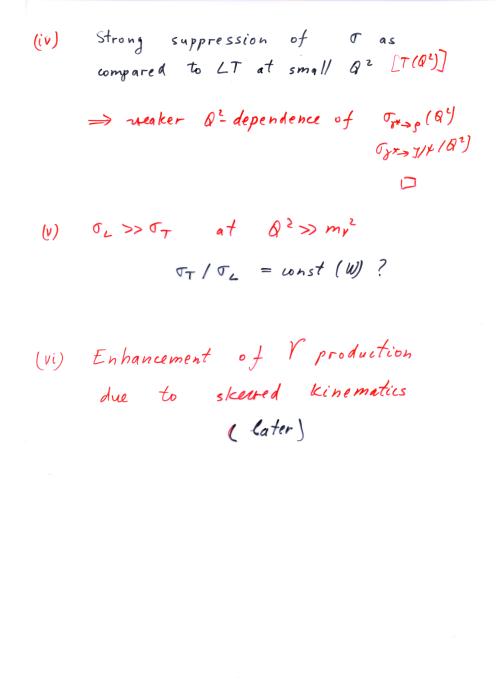 (iv) Strong suppression of σ as
compared to LT at small Q² [T(Q²)]
⇒ weaker Q²-dependence of σγ*→ρ(Q²)
σγ*→J/ψ(Q²)
□
(v) σL >> σT at Q² >> mV²
σT / σL = const (W) ?
(vi) Enhancement of ϒ production
due to skewed kinematics
(later)